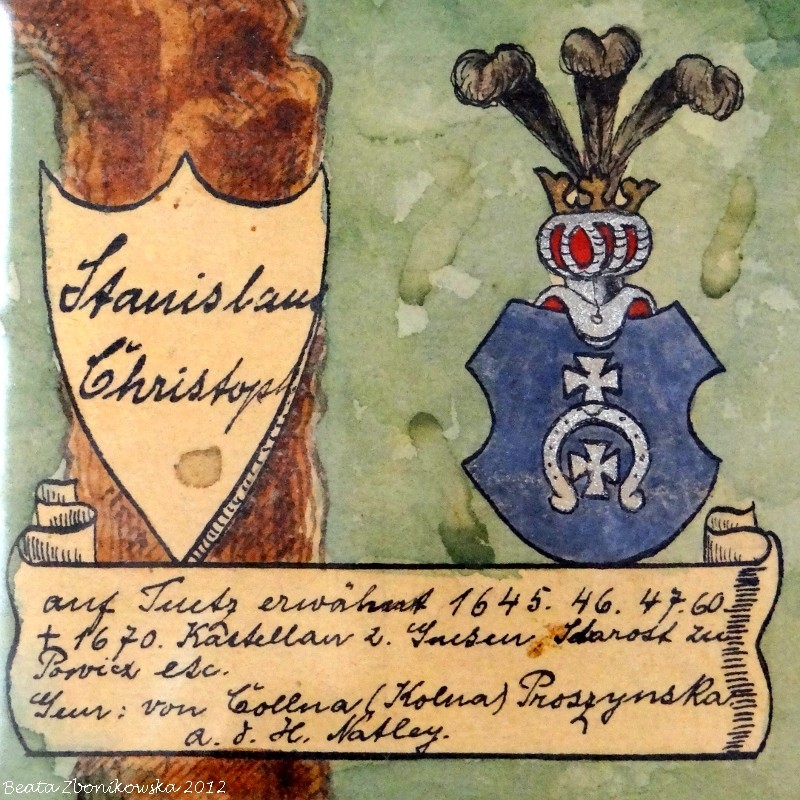 Stanislaus
Christoph
auf Tuetz erwähnt 1645. 46. 47. 60.
+ 1670. Kastellan z. Gnesen Starost zu
Powicz etc.
Gem: von Collna (Kolna) Proszynska
a. d. H. Natley.
Beata Zbonikowska 2012